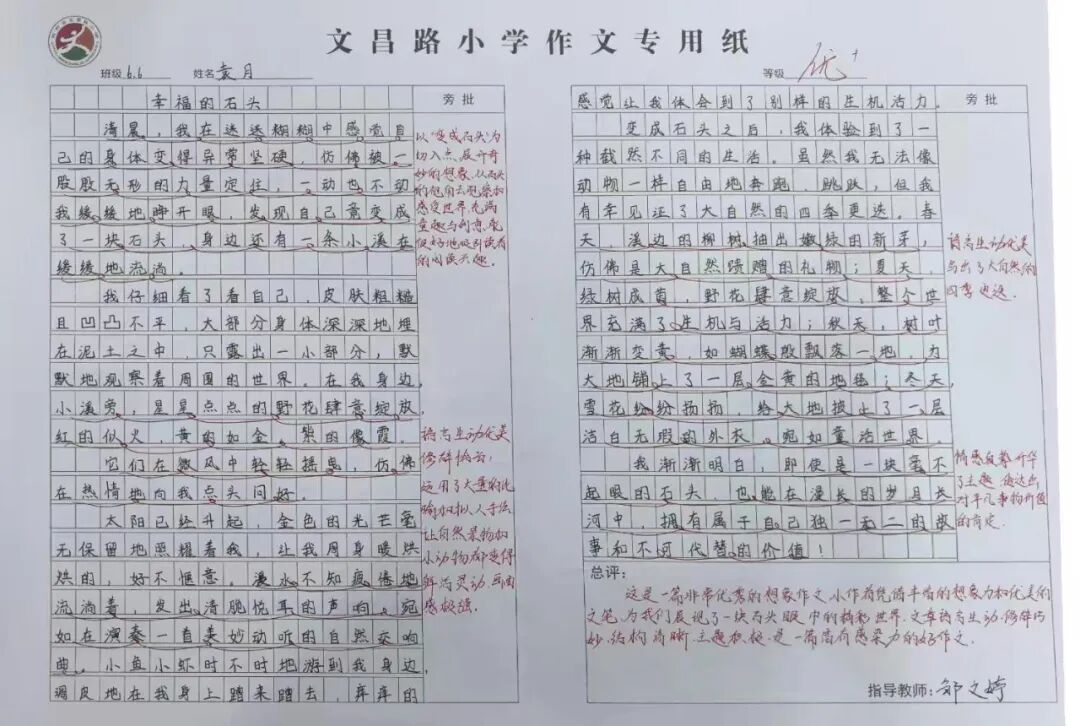 文昌路小学作文专用纸
班级6.6 姓名袁月
等级 优+
幸福的石头
旁批
清晨，我在迷迷糊糊中感觉自
己的身体变得异常坚硬，仿佛被一
股股无形的力量定住，一动也不动
我缓缓地睁开眼，发现自己竟变成
了一块石头，身边还有一条小溪在
缓缓地流淌。
我仔细看了看自己，皮肤粗糙
且凹凸不平，大部分身体深深地埋
在泥土之中，只露出一小部分，默
默地观察着周围的世界。在我身边，
小溪旁，星星点点的野花肆意绽放，
红的似火，黄的如金，紫的像霞。
它们在微风中轻轻摇曳，仿佛
在热情地向我点头问好。
太阳已经升起，金色的光芒毫
无保留地照耀着我，让我周身暖烘
烘的，好不惬意。溪水不知疲倦地
流淌着，发出清脆悦耳的声响，宛
如在演奏一首美妙动听的自然交响
曲。小鱼小虾时不时地游到我身边，
调皮地在我身上蹭来蹭去，痒痒的
以“变成石头”为
切入点，展开奇
妙的想象，以石头
的视角去观察和
感受世界，充满
童趣与创意，能
很好地吸引读者
的阅读兴趣。
语言生动优美
修辞恰当，
运用了大量的比
喻和拟人手法，
让自然景物和
小动物都变得
鲜活灵动，画面
感极强。
旁批
感觉让我体会到了别样的生机活力。
变成石头之后，我体验到了一
种截然不同的生活。虽然我无法像
动物一样自由地奔跑、跳跃，但我
有幸见证了大自然的四季更迭。春
天，溪边的柳树抽出嫩绿的新芽，
仿佛是大自然馈赠的礼物；夏天，
绿树成荫，野花肆意绽放，整个世
界充满了生机与活力；秋天，树叶
渐渐变黄，如蝴蝶般飘落一地，为
大地铺上了一层金黄的地毯；冬天，
雪花纷纷扬扬，给大地披上了一层
洁白无瑕的外衣，宛如童话世界。
我渐渐明白，即使是一块毫不
起眼的石头，也能在漫长的岁月长
河中，拥有属于自己独一无二的故
事和不可代替的价值！
语言生动优美
写出了大自然的
四季更迭。
情感真挚，升华
了主题，表达出
对平凡事物价值
的肯定。
总评：
这是一篇非常优秀的想象作文，小作者凭借丰富的想象力和优美的
文笔，为我们展现了一块石头眼中的精彩世界。文章语言生动，修辞巧
妙，结构清晰，主题积极，是一篇富有感染力的好作文。
指导教师：邹文婷